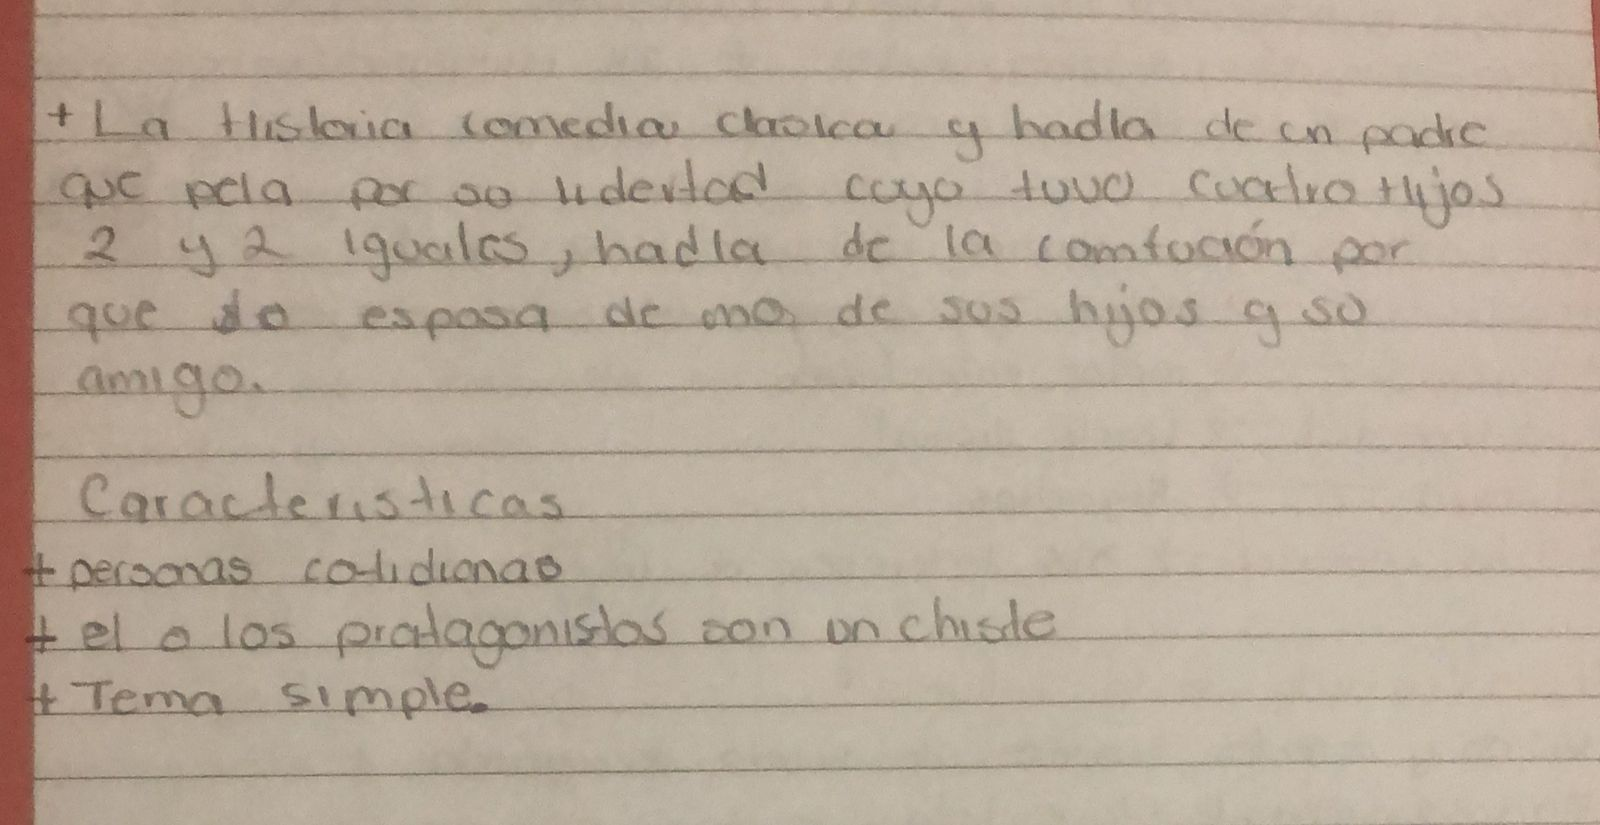 + La Historia comedia clasica y habla de un padre
que pela por so libertad cuyo tuvo cuatro Hijos
2 y 2 iguales, habla de la comfución por
que so esposa de uno de sus hijos y so
amigo.
Caracteristicas
+ personas cotidianas
+ el o los protagonistas son un chiste
+ Tema simple.